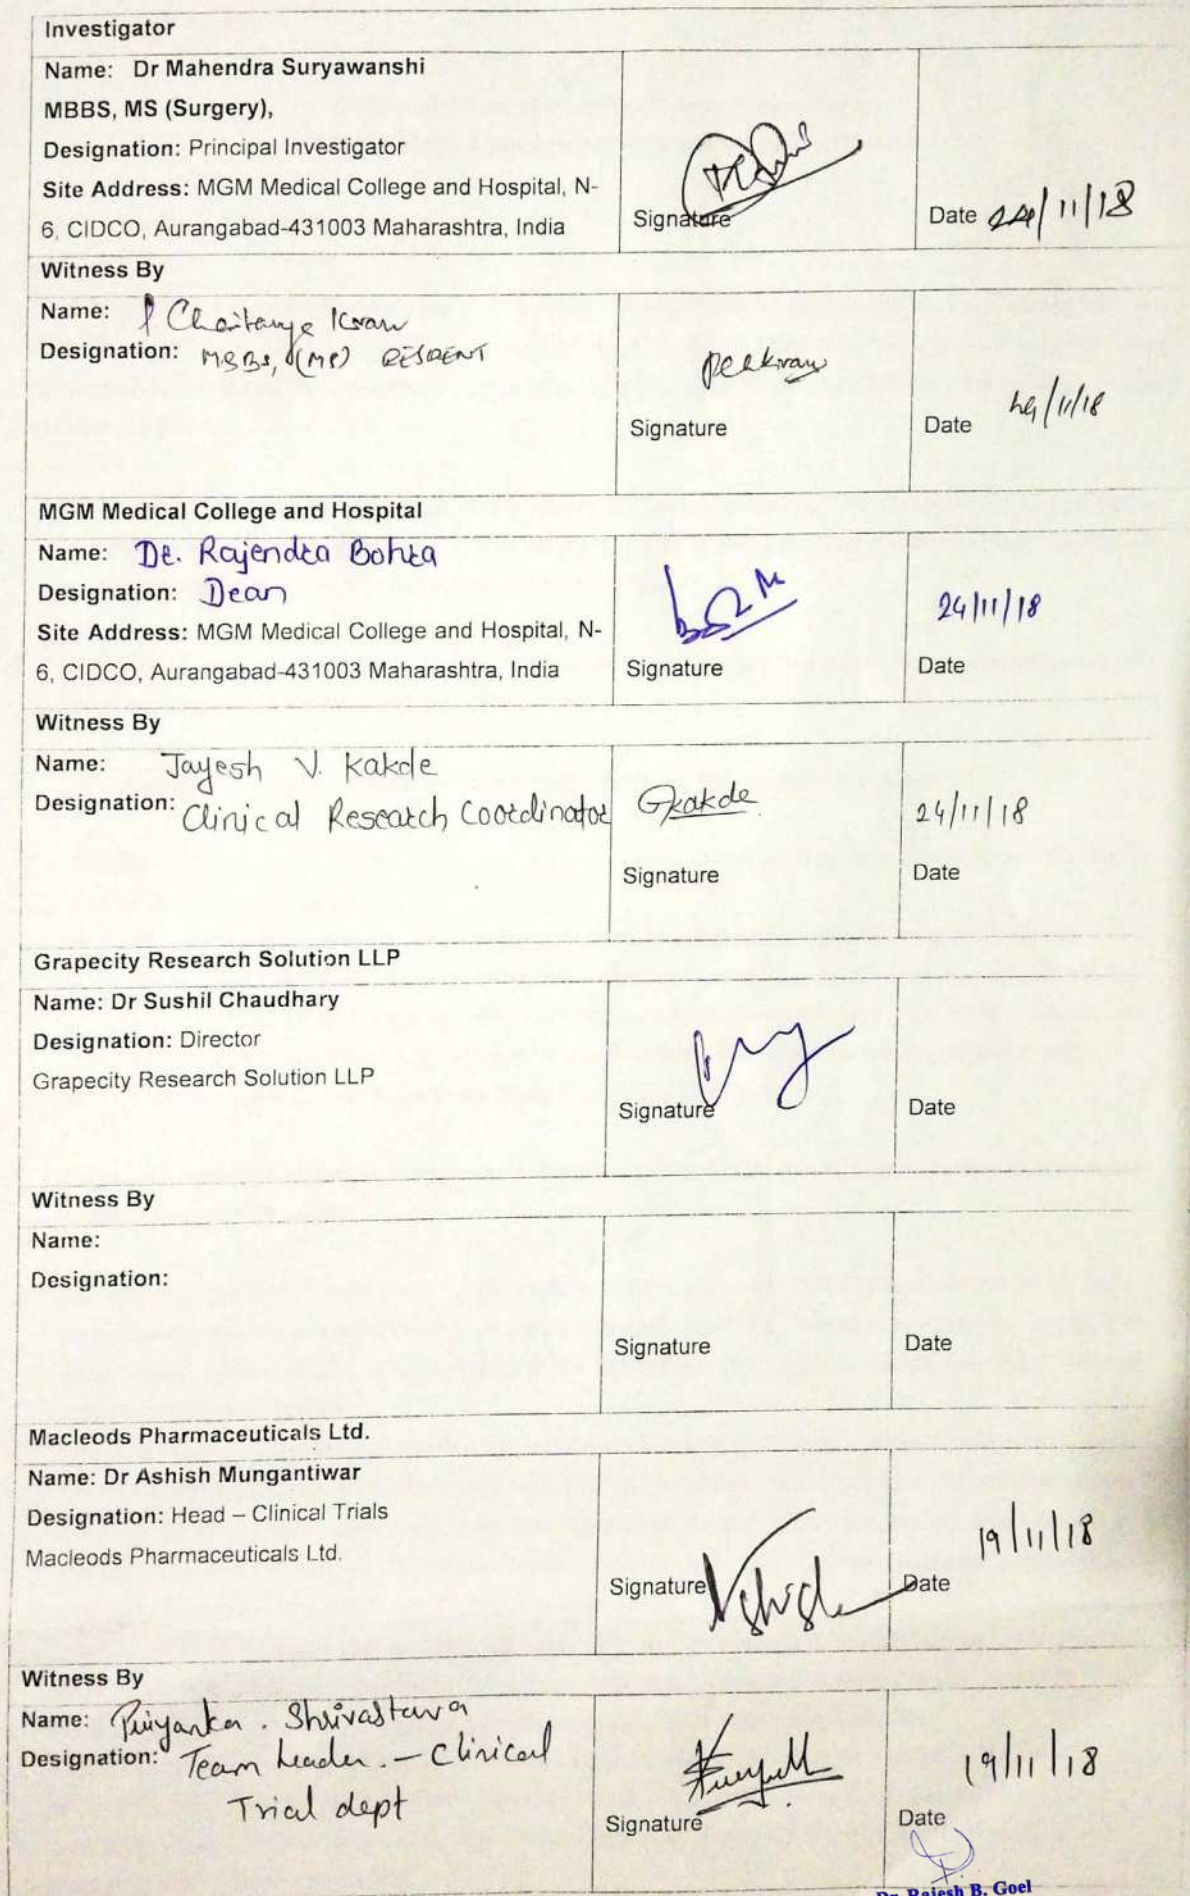 Investigator
Name: Dr Mahendra Suryawanshi
MBBS, MS (Surgery),
Designation: Principal Investigator
Site Address: MGM Medical College and Hospital, N-
6, CIDCO, Aurangabad-431003 Maharashtra, India
Signature
Date 24/11/18
Witness By
Name: Chaitanya Kiran
Designation: MBBS, (MS) RESIDENT
Signature
Date 24/11/18
MGM Medical College and Hospital
Name: Dr. Rajendra Bohra
Designation: Dean
Site Address: MGM Medical College and Hospital, N-
6, CIDCO, Aurangabad-431003 Maharashtra, India
Signature
24/11/18
Date
Witness By
Name: Jayesh V. Kakde
Designation: Clinical Research Coordinator
Gkakde
Signature
24/11/18
Date
Grapecity Research Solution LLP
Name: Dr Sushil Chaudhary
Designation: Director
Grapecity Research Solution LLP
Signature
Date
Witness By
Name:
Designation:
Signature
Date
Macleods Pharmaceuticals Ltd.
Name: Dr Ashish Mungantiwar
Designation: Head – Clinical Trials
Macleods Pharmaceuticals Ltd.
Signature
19/11/18
Date
Witness By
Name: Priyanka . Shrivastava
Designation: Team Leader. – Clinical
Trial dept
Signature
19/11/18
Date
Dr. Rajesh B. Goel